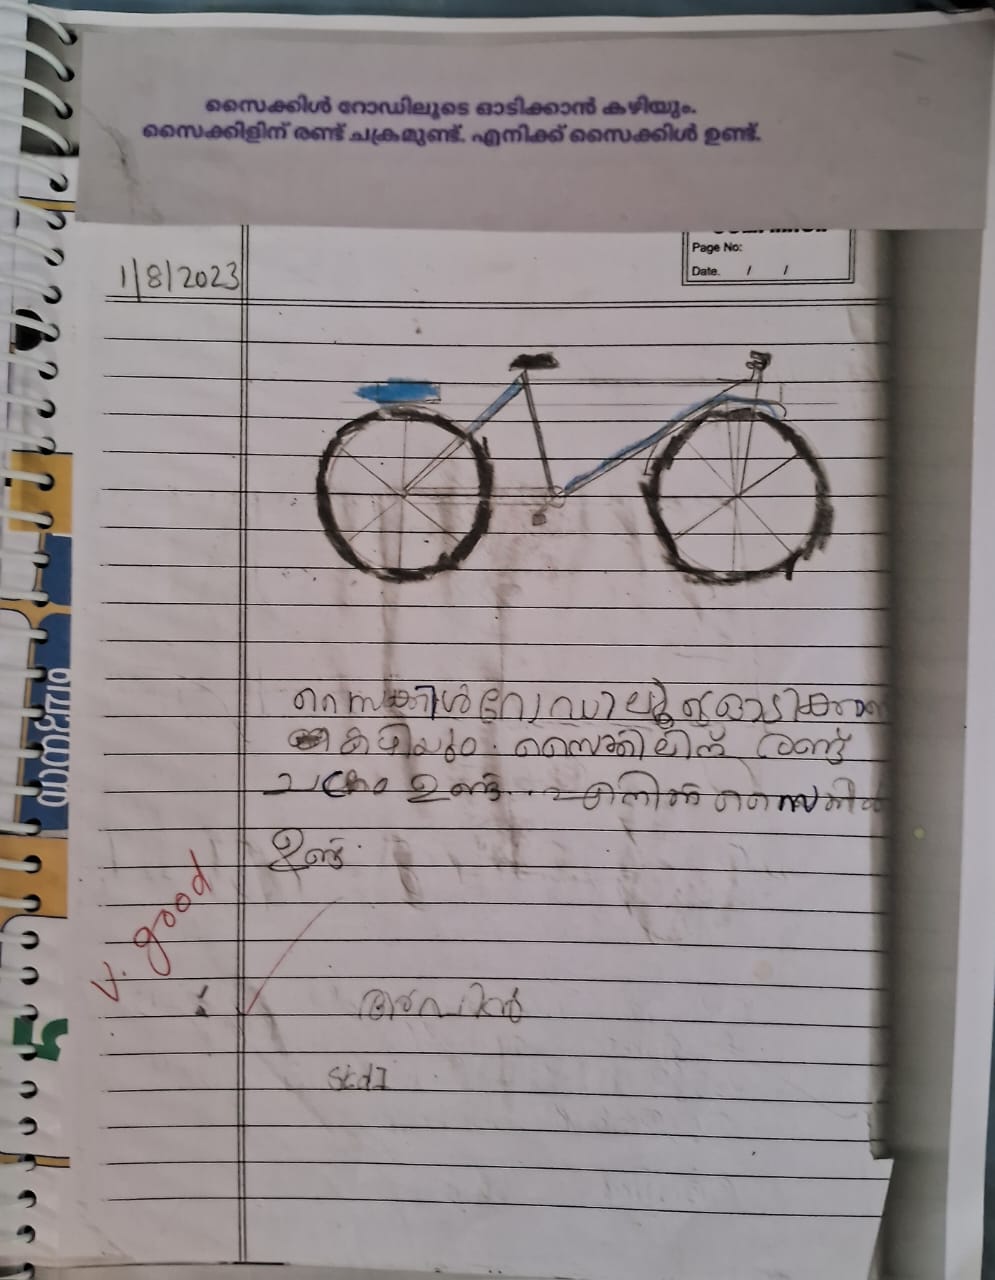 സൈക്കിൾ റോഡിലൂടെ ഓടിക്കാൻ കഴിയും.
സൈക്കിളിന് രണ്ട് ചക്രമുണ്ട്. എനിക്ക് സൈക്കിൾ ഉണ്ട്.
Page No:
Date. / /
1/8/2023
സൈക്കിൾ റോഡിലൂടെ ഓടിക്കാൻ
കഴിയും. സൈക്കിലിന് രണ്ട്
ചക്രം ഉണ്ട്. എനിക്ക്
ഉണ്ട്.
v. good
Std I
5